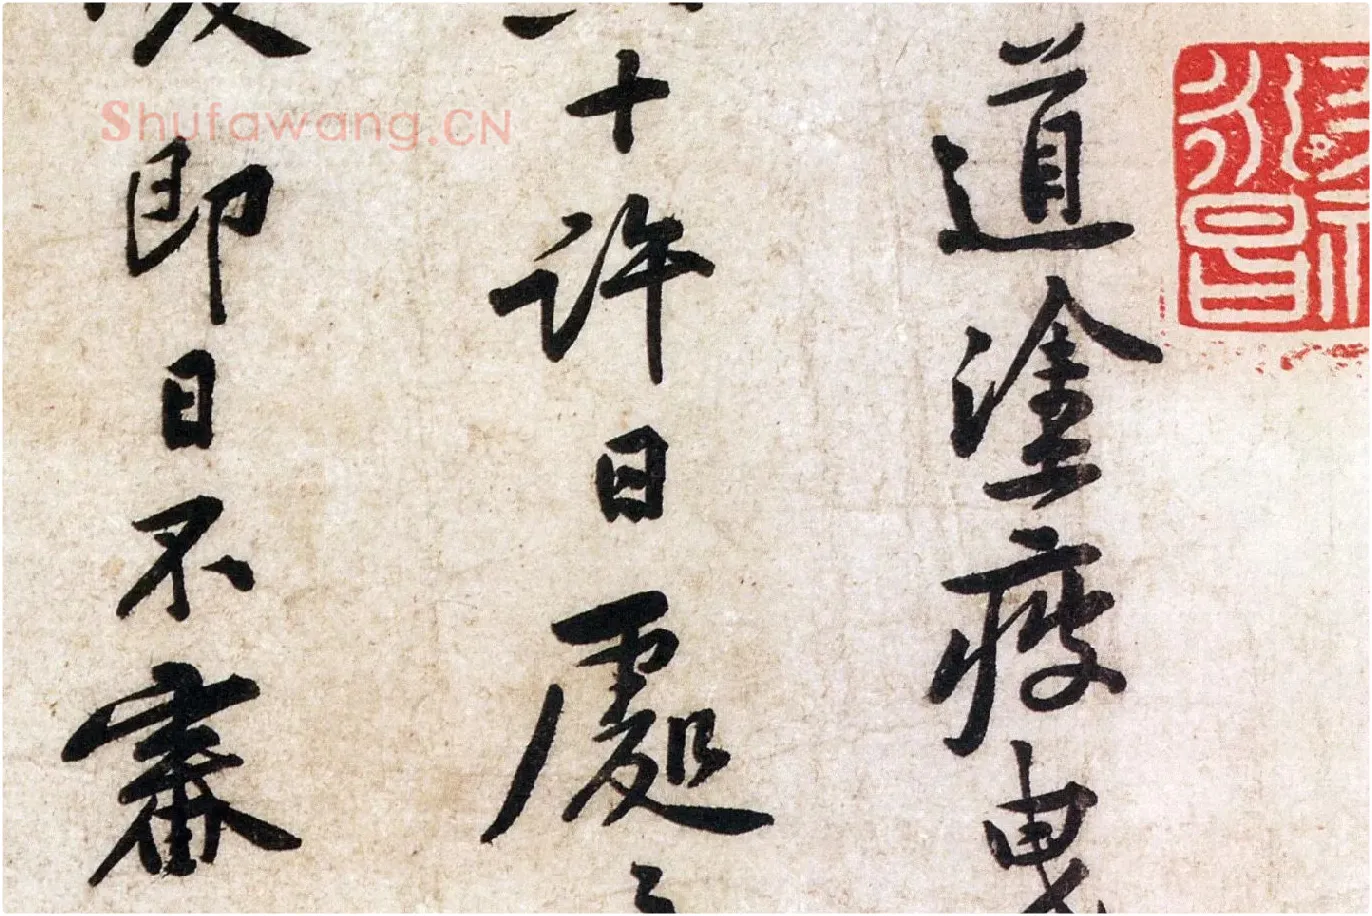 道塗疲曳
十許日處〻
即日不審
Shufawang.CN